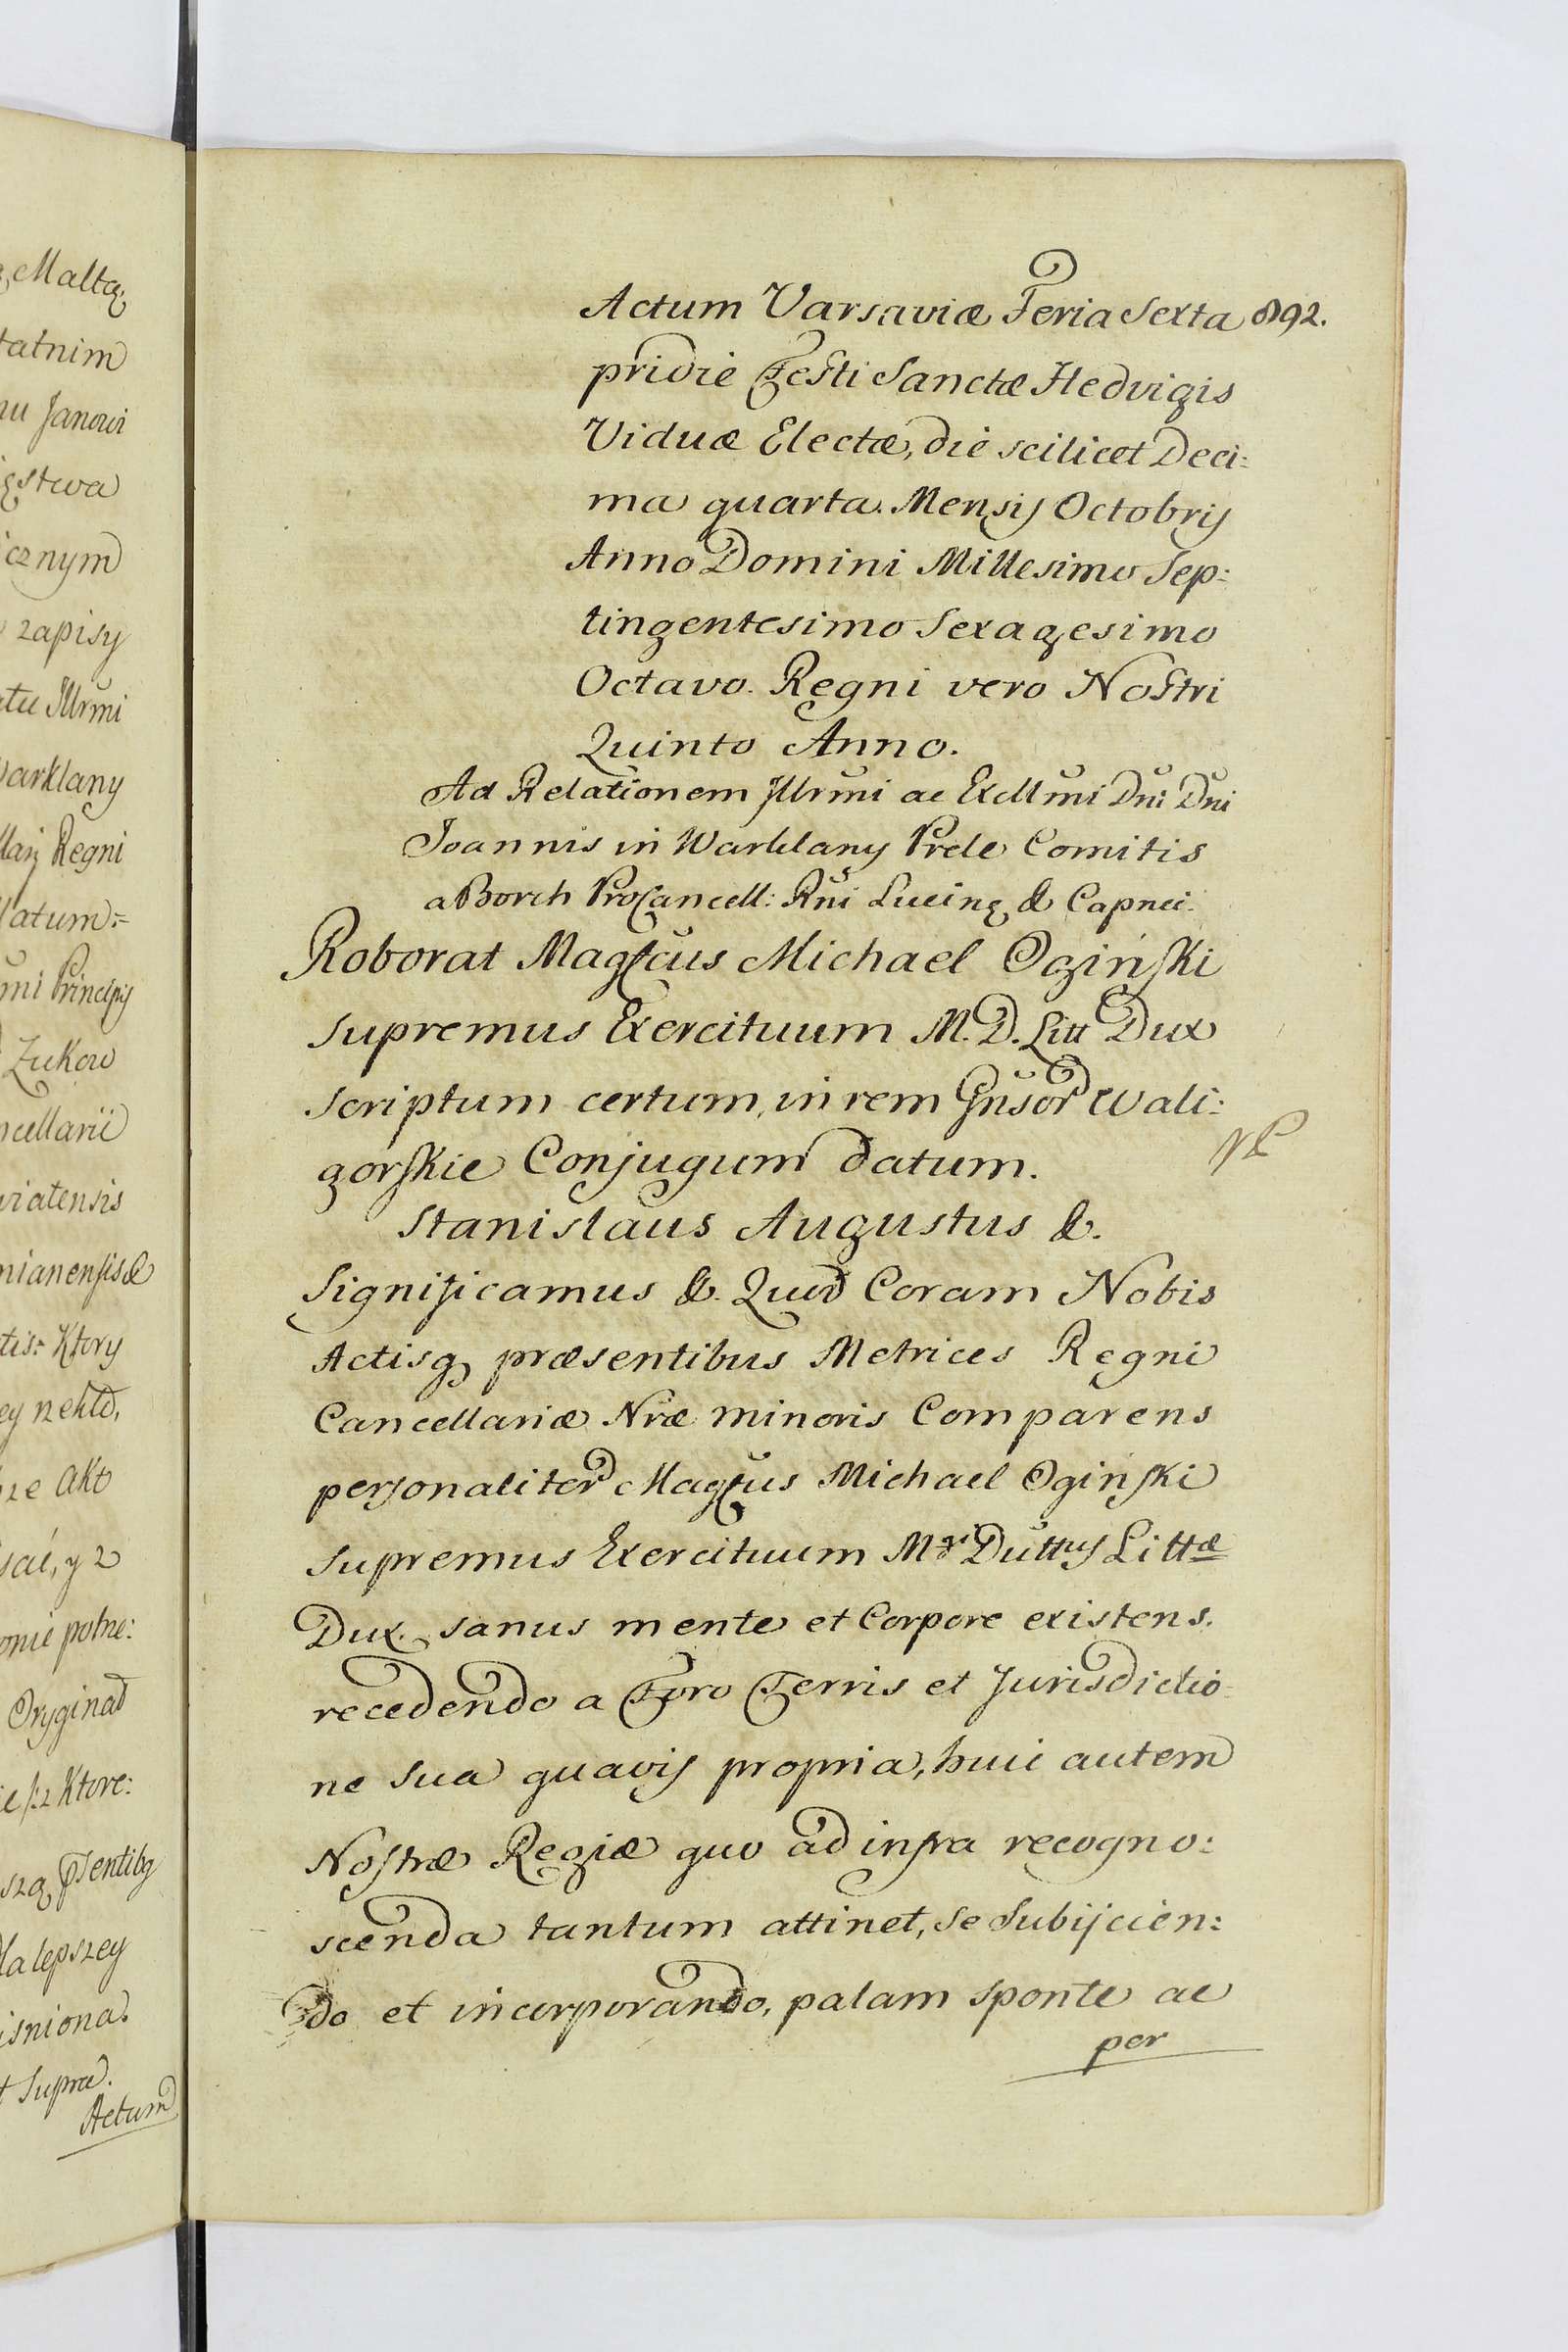 Malta
tatnim
nu Janowi
stwa
icznym
zapisy
atu Jllrmi
Warklany
Regni
latum:=
mi Principis
Zukow
ncellarii
viatensis
nianensis &
tis: Ktory
ey
ze Akt
y z
onie potne:
Oryginał
Ktore:
sentibq
la lepszey
isniona.
t Supra.
Actum
Actum Varsaviæ Feria Sexta 892.
pridie Festi Sanctæ Hedvigis
Viduæ Electæ, die scilicet Deci:
ma quarta. Mensis Octobris
Anno Domini Millesimo Sep:
tingentesimo Sexagesimo
Octavo. Regni vero Nostri
Quinto Anno.
Ad Relationem Jllrmi ac Excllmi Dni Dni
Joannis in Warklany Prele Comitis
a Borch ProCancell: Rni Lucinę & Capnei.
Roborat Magcus Michael Oginski
Supremus Exercituum M. D. Litt Dux
scriptum certum, in rem Gnsor Wali:
gorskie Conjugum datum.
Stanislaus Augustus &.
Significamus &. Quod Coram Nobis
Actisq, præsentibus Metrices Regni
Cancellariæ Nræ minoris Comparens
personaliter Magcus Michael Oginski
Supremus Exercituum Mgi Duttus Littæ
Dux. sanus mente et Corpore existens.
recedendo a Foro Terris et Jurisdictio
ne sua quavis propria, huic autem
Nostræ Regiæ quo ad infra recogno:
scenda tantum attinet, se Subijcien:
do et incorporando, palam sponte ac
per